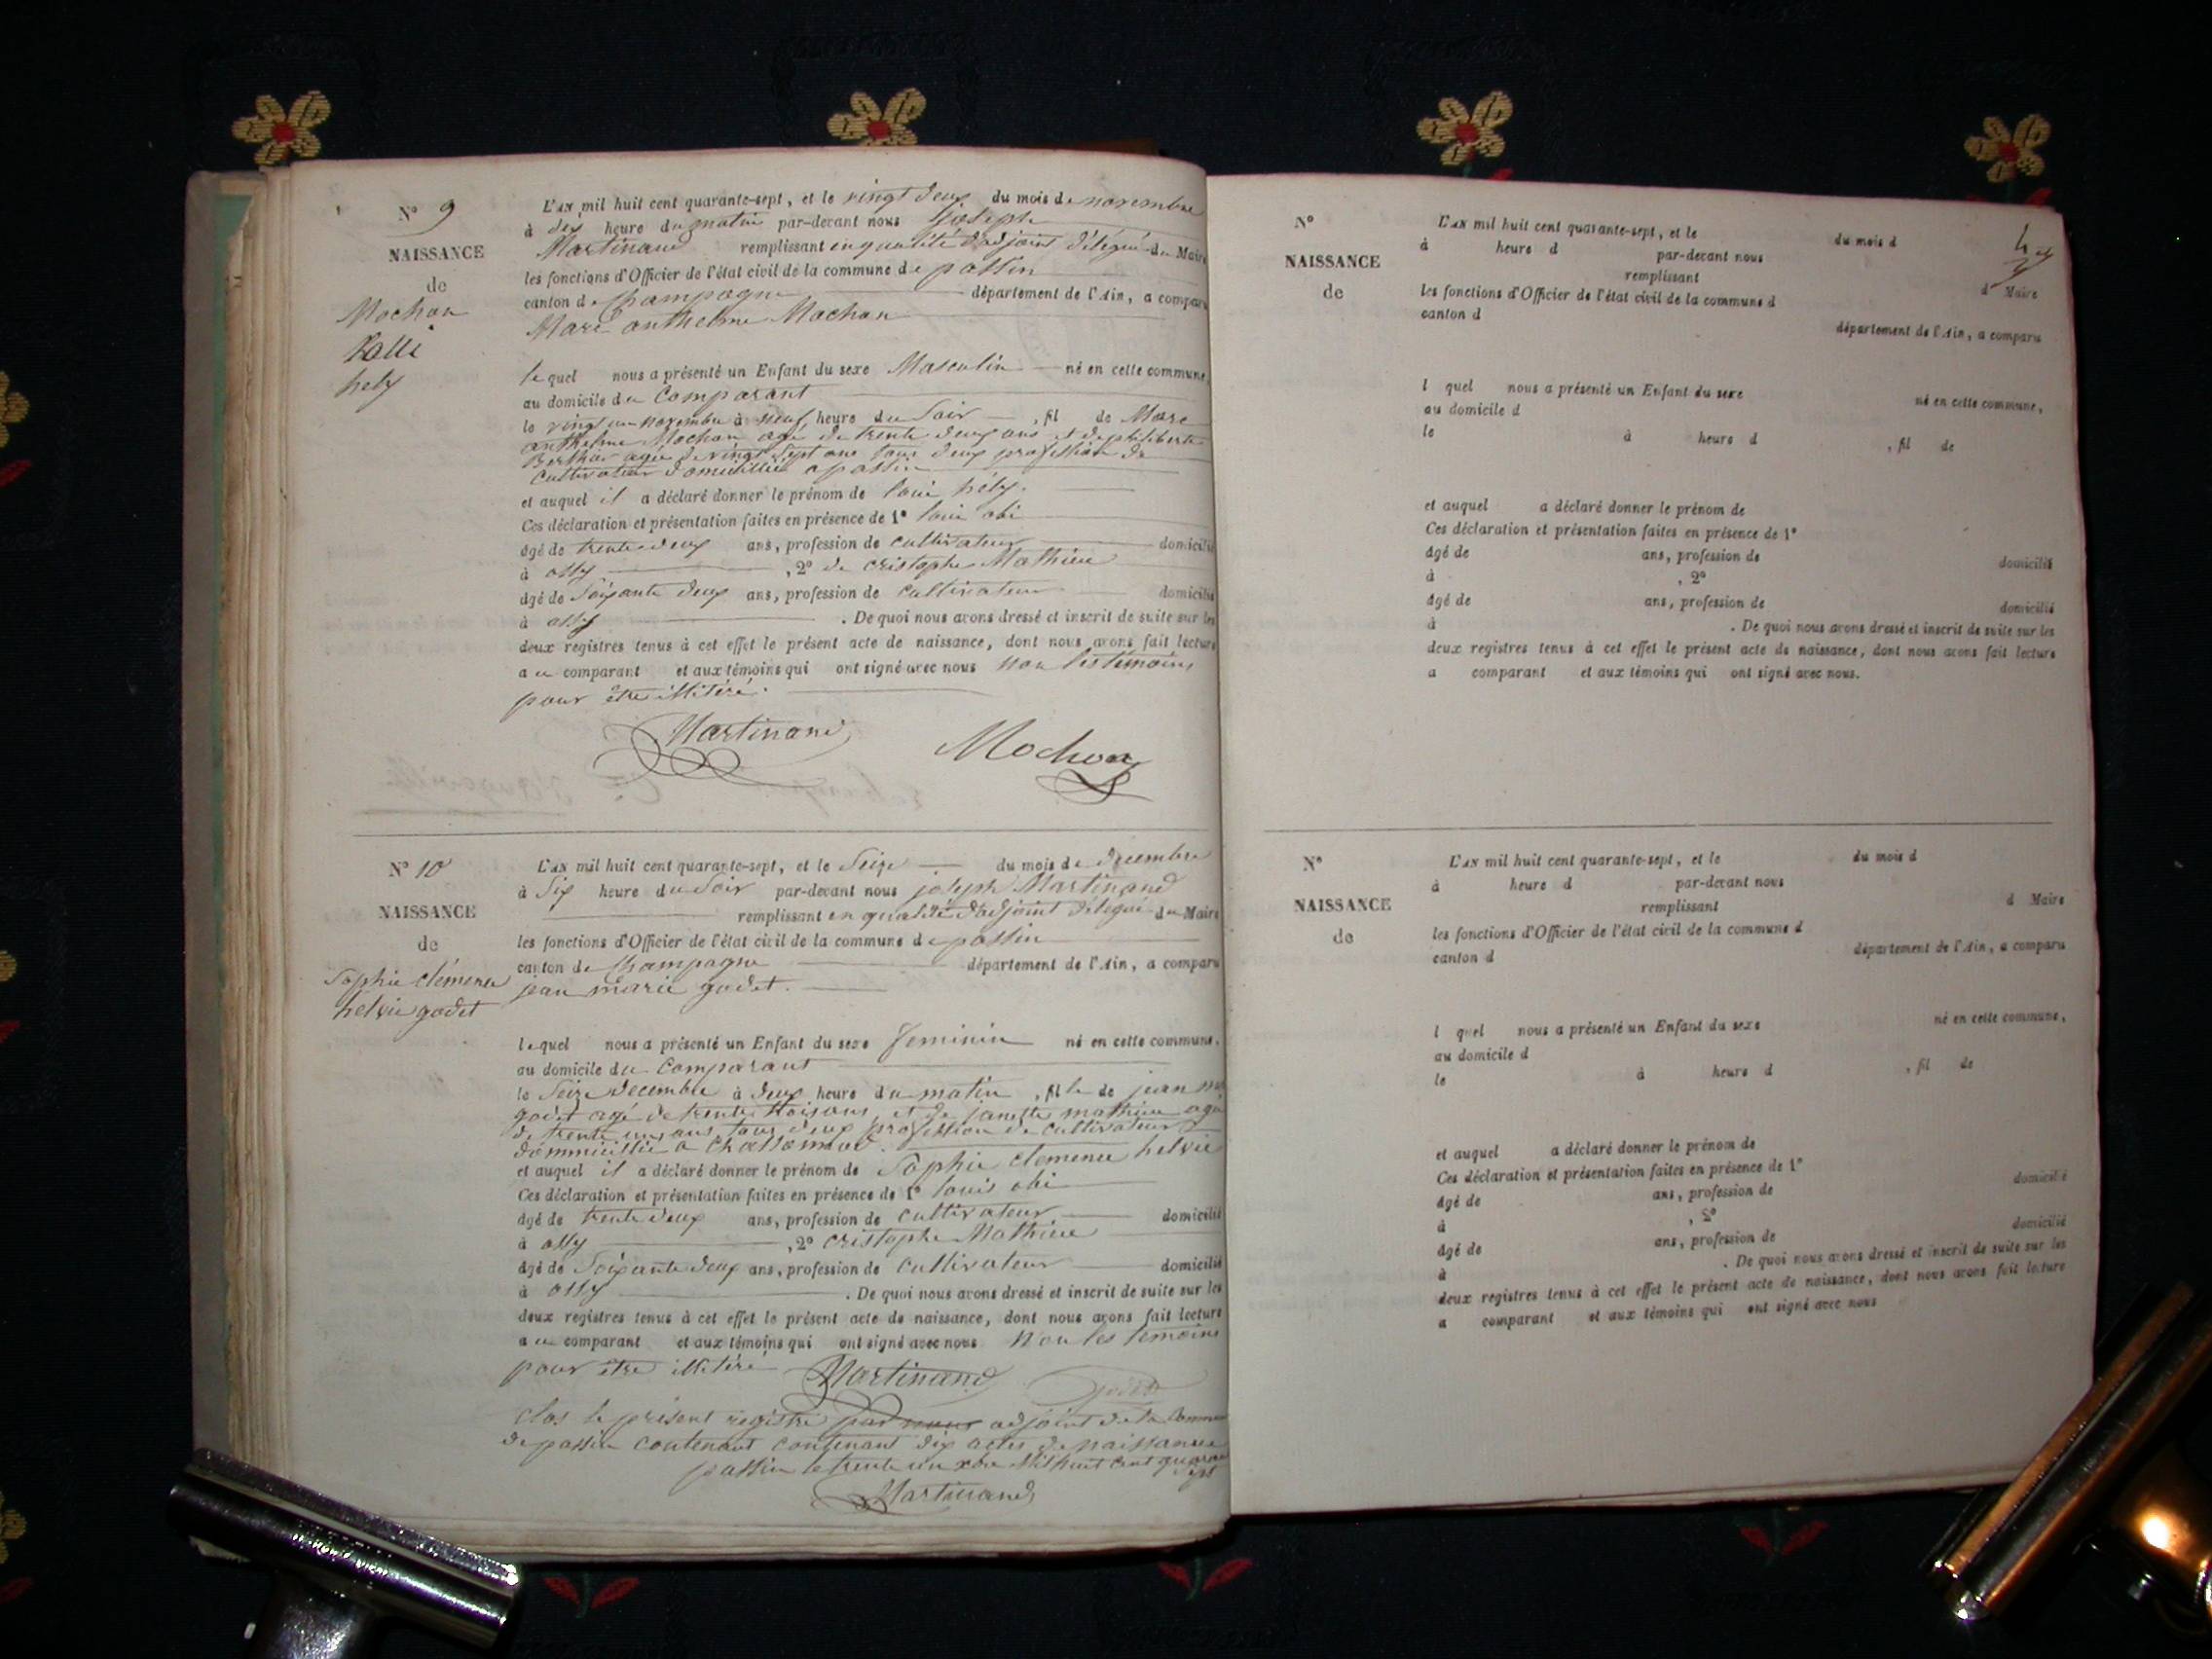 N° 9
NAISSANCE
de
Mochon
Loui
hely
L'AN mil huit cent quarante-sept, et le vingt deux du mois de novembre
à dix heure du matin par-devant nous Joseph
Martinand remplissant en qualité d'adjoint délégué du Maire
les fonctions d'Officier de l'état civil de la commune de passin
canton de Champagne département de l'Ain, a comparu
Marc anthelme Mochon
lequel nous a présenté un Enfant du sexe Masculin né en cette commune,
au domicile du Comparant
le vingt un novembre à neuf heure du Soir , fil de Marc
anthelme Mochon agé de trente deux ans et de philiberte
Berthier agée de vingt Sept ans tous deux profession de
Cultivateur domicillié a passin
et auquel il a déclaré donner le prénom de loui hély.
Ces déclaration et présentation faites en présence de 1° loui obi
âgé de trente deux ans, profession de Cultivateur domicilié
à ossy , 2° de cristophe Mathieu
âgé de Soixante deux ans, profession de Cultivateur domicilié
à ossy . De quoi nous avons dressé et inscrit de suite sur les
deux registres tenus à cet effet le présent acte de naissance, dont nous avons fait lecture
au comparant et aux témoins qui ont signé avec nous Non les témoins
pour être illitéré.
Martinand Mochon
N° 10
NAISSANCE
de
Sophie clémence
helvie godet
L'AN mil huit cent quarante-sept, et le Seize du mois de decembre
à Six heure du Soir par-devant nous joseph Martinand
remplissant en qualité d'adjoint délégué du Maire
les fonctions d'Officier de l'état civil de la commune de passin
canton de Champagne département de l'Ain, a comparu
jean marie godet.
lequel nous a présenté un Enfant du sexe feminin né en cette commune,
au domicile du Comparant
le Seize decembre à deux heure du matin , fille de jean m
godet agé de trente troisans et de janette mathieu agé
de trente un ans tous deux profession de cultivateur
dommicillié a Chassonnod.
et auquel il a déclaré donner le prénom de Sophie clemence helvie
Ces déclaration et présentation faites en présence de 1° louis obi
âgé de trente deux ans, profession de cultivateur domicilié
à ossy , 2° cristophe Mathieu
âgé de Soixante deux ans, profession de Cultivateur domicilié
à ossy . De quoi nous avons dressé et inscrit de suite sur les
deux registres tenus à cet effet le présent acte de naissance, dont nous avons fait lecture
au comparant et aux témoins qui ont signé avec nous Non les temoins
pour être illitéré Martinand godet
Clos le présent registre par nous adjoint de la Commune
de passin contenant contenant dix actes de naissance
passin le trente un xbre Mil huit Cent quarante
Sept
Martinand
N°
NAISSANCE
de
L'AN mil huit cent quarante-sept, et le du mois d
à heure d par-devant nous
remplissant d Maire
les fonctions d'Officier de l'état civil de la commune d
canton d département de l'Ain, a comparu
l quel nous a présenté un Enfant du sexe né en cette commune,
au domicile d
le à heure d , fil de
et auquel a déclaré donner le prénom de
Ces déclaration et présentation faites en présence de 1°
âgé de ans, profession de domicilié
à , 2°
âgé de ans, profession de domicilié
à . De quoi nous avons dressé et inscrit de suite sur les
deux registres tenus à cet effet le présent acte de naissance, dont nous avons fait lecture
a comparant et aux témoins qui ont signé avec nous.
N°
NAISSANCE
de
L'AN mil huit cent quarante-sept, et le du mois d
à heure d par-devant nous
remplissant d Maire
les fonctions d'Officier de l'état civil de la commune d
canton d département de l'Ain, a comparu
l quel nous a présenté un Enfant du sexe né en cette commune,
au domicile d
le à heure d , fil de
et auquel a déclaré donner le prénom de
Ces déclaration et présentation faites en présence de 1°
âgé de ans, profession de domicilié
à , 2°
âgé de ans, profession de domicilié
à . De quoi nous avons dressé et inscrit de suite sur les
deux registres tenus à cet effet le présent acte de naissance, dont nous avons fait lecture
a comparant et aux témoins qui ont signé avec nous